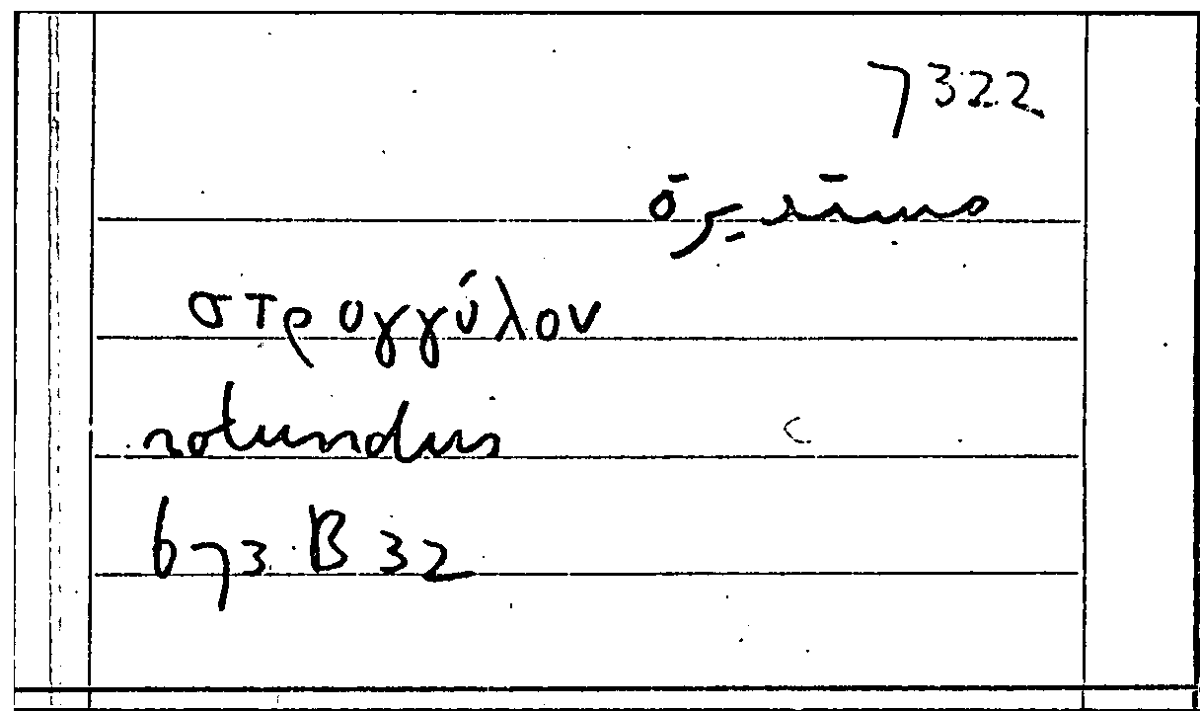 7322
مستديرة
στρογγύλον
rotundus
673 B 32